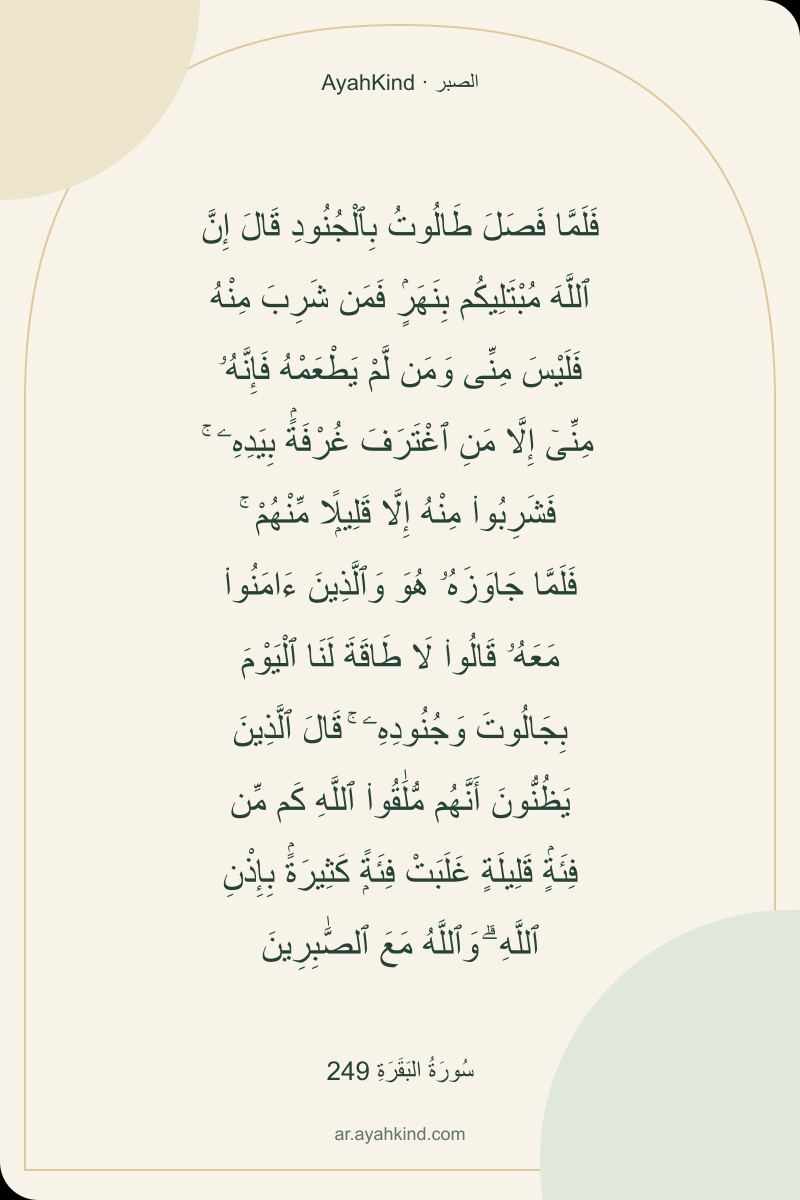 AyahKind · الصبر
فَلَمَّا فَصَلَ طَالُوتُ بِٱلْجُنُودِ قَالَ إِنَّ
ٱللَّهَ مُبْتَلِيكُم بِنَهَرٍۢ فَمَن شَرِبَ مِنْهُ
فَلَيْسَ مِنِّى وَمَن لَّمْ يَطْعَمْهُ فَإِنَّهُۥ
مِنِّىٓ إِلَّا مَنِ ٱغْتَرَفَ غُرْفَةًۢ بِيَدِهِۦ ۚ
فَشَرِبُوا۟ مِنْهُ إِلَّا قَلِيلًۭا مِّنْهُمْ ۚ
فَلَمَّا جَاوَزَهُۥ هُوَ وَٱلَّذِينَ ءَامَنُوا۟
مَعَهُۥ قَالُوا۟ لَا طَاقَةَ لَنَا ٱلْيَوْمَ
بِجَالُوتَ وَجُنُودِهِۦ ۚ قَالَ ٱلَّذِينَ
يَظُنُّونَ أَنَّهُم مُّلَـٰقُوا۟ ٱللَّهِ كَم مِّن
فِئَةٍۢ قَلِيلَةٍ غَلَبَتْ فِئَةًۭ كَثِيرَةًۢ بِإِذْنِ
ٱللَّهِ ۗ وَٱللَّهُ مَعَ ٱلصَّـٰبِرِينَ
سُورَةُ البَقَرَةِ 249
ar.ayahkind.com